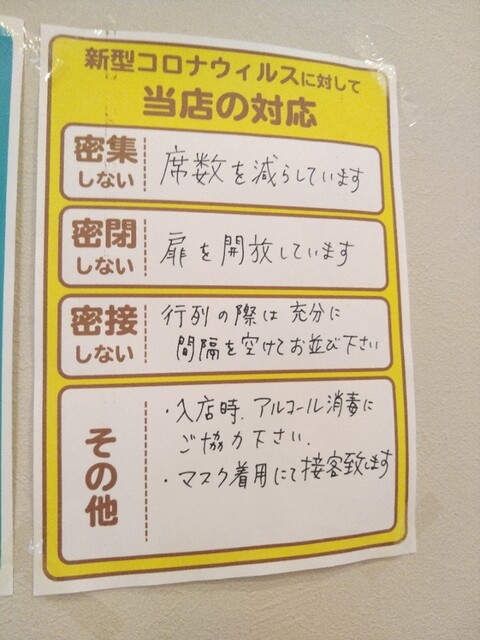 新型コロナウィルスに対して
当店の対応
密集
しない
席数を減らしています
密閉
しない
扉を開放しています
密接
しない
行列の際は充分に
間隔を空けてお並び下さい
その他
・入店時、アルコール消毒に
ご協力下さい.
・マスク着用にて接客致します